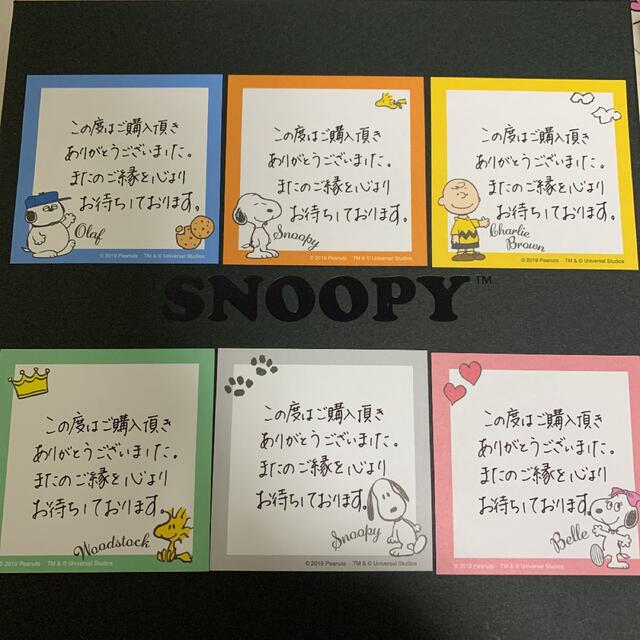 この度はご購入頂き
ありがとうございました。
またのご縁を心より
お待ちしております。
Olaf
© 2019 Peanuts TM & © Universal Studios
この度はご購入頂き
ありがとうございました。
またのご縁を心より
お待ちしております。
Snoopy
© 2019 Peanuts TM & © Universal Studios
この度はご購入頂き
ありがとうございました。
またのご縁を心より
お待ちしております。
Charlie
Brown
© 2019 Peanuts TM & © Universal Studios
SNOOPY™
この度はご購入頂き
ありがとうございました。
またのご縁を心より
お待ちしております。
Woodstock
© 2019 Peanuts TM & © Universal Studios
この度はご購入頂き
ありがとうございました。
またのご縁を心より
お待ちしております。
Snoopy
© 2019 Peanuts TM & © Universal Studios
この度はご購入頂き
ありがとうございました。
またのご縁を心より
お待ちしております。
Belle
© 2019 Peanuts TM & © Universal Studios